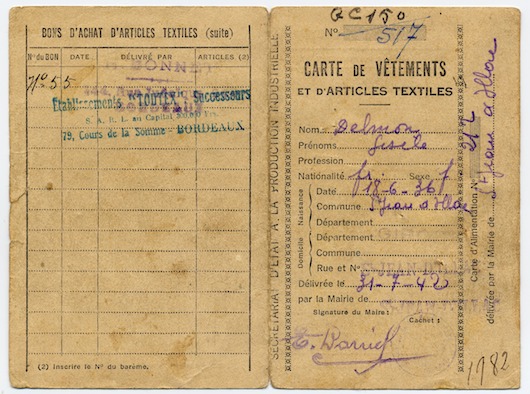 BONS D'ACHAT D'ARTICLES TEXTILES (suite)
N° du BON DATE DÉLIVRÉ PAR ARTICLES (2)
N° 55
BONNET
BORDEAUX
Établissements Successeurs
S. A. R. L. au Capital
79, Cours de la Somme - BORDEAUX
(2) Inscrire le N° du barème.
SECRÉTARIAT D'ÉTAT A LA PRODUCTION INDUSTRIELLE
GC150
N° 517
CARTE DE VÊTEMENTS
ET D'ARTICLES TEXTILES
Nom Delmon
Prénoms Gisèle
Profession
Nationalité fr. Sexe f
Naissance
Date 18-6-36
Commune St Jean d'Illac
Département
Domicile
Département
Commune
Rue et N°
Délivrée le 31-7-42
par la Mairie de
Signature du Maire : Cachet :
Carte d'Alimentation N°
délivrée par la Mairie de St Jean d'Illac
1982